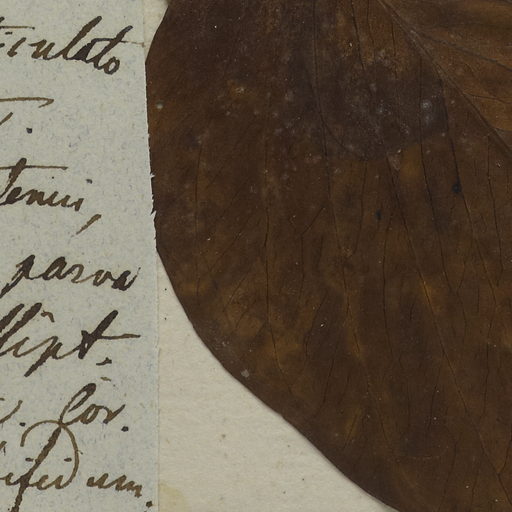 iculato
T.
tenui,
parva
llipt.
Cor.
ifidum.